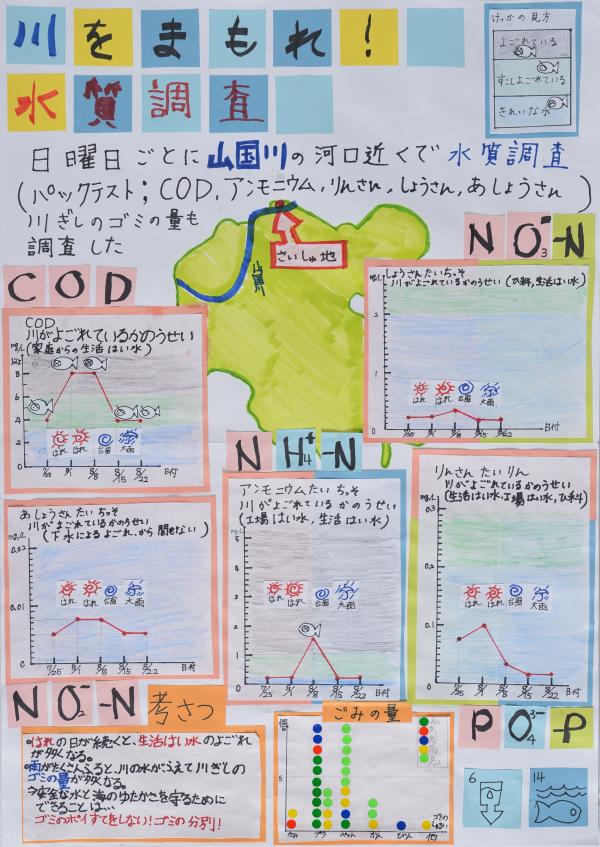 川をまもれ!
水質調査
けっかの見方
よごれている
すこしよごれている
きれいな水
日曜日ごとに山国川の河口近くで水質調査
(パックテスト;COD,アンモニウム,りんさん,しょうさん,あしょうさん)
川ぎしのゴミの量も
調査した
さいしゅ地
山国川
COD
COD
川がよごれているかのうせい
(家庭からの生活はい水)
mg/L
8
6
4
2
0
はれ はれ 台風 大雨
7/25 8/1 8/8 8/15 8/22 日付
NO₃⁻-N
mg/L しょうさんたいちっそ
川がよごれているかのうせい(ひ料,生活はい水)
2
1
0
はれ はれ 台風 大雨
7/25 8/1 8/8 8/15 8/22 日付
あしょうさんたいちっそ
川がよごれているかのうせい
(下水によるよごれ,から間もない)
mg/L
0.02
0.01
0
はれ はれ 台風 大雨
7/25 8/1 8/8 8/15 8/22 日付
NO₂⁻-N
NH₄⁺-N
アンモニウムたいちっそ
川がよごれているかのうせい
(工場はい水,生活はい水)
mg/L
2
1
0
はれ はれ 台風 大雨
7/25 8/1 8/8 8/15 8/22 日付
りんさんたいりん
川がよごれているかのうせい
(生活はい水,工場はい水,ひ料)
mg/L
0.3
0.2
0.1
0
はれ はれ 台風 大雨
7/25 8/1 8/8 8/15 8/22 日付
PO₄³⁻-P
考さつ
•はれの日が続くと、生活はい水のよごれ
が多くなる。
•雨がたくさんふると、川の水がふえて川ぎしの
ゴミの量が多くなる。
安全な水と海のゆたかさを守るために
できることは…
ゴミのポイすてをしない!ゴミの分別!
ごみの量
個
5
かみ プラ ペット かん びん 他
ゴミの
しゅるい
6
14